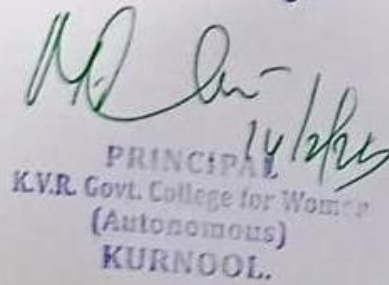 14/2/25
PRINCIPAL
K.V.R. Govt. College for Women
(Autonomous)
KURNOOL.